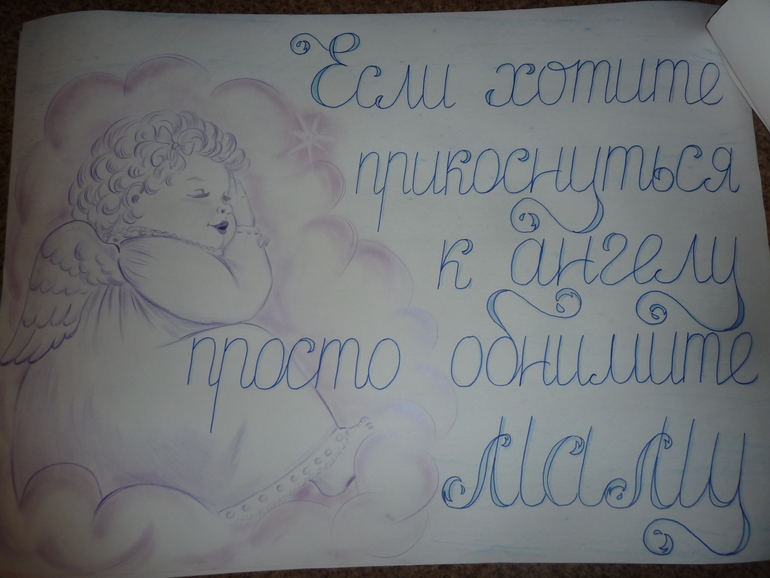 Если хотите
прикоснуться
к ангелу
просто обнимите
маму